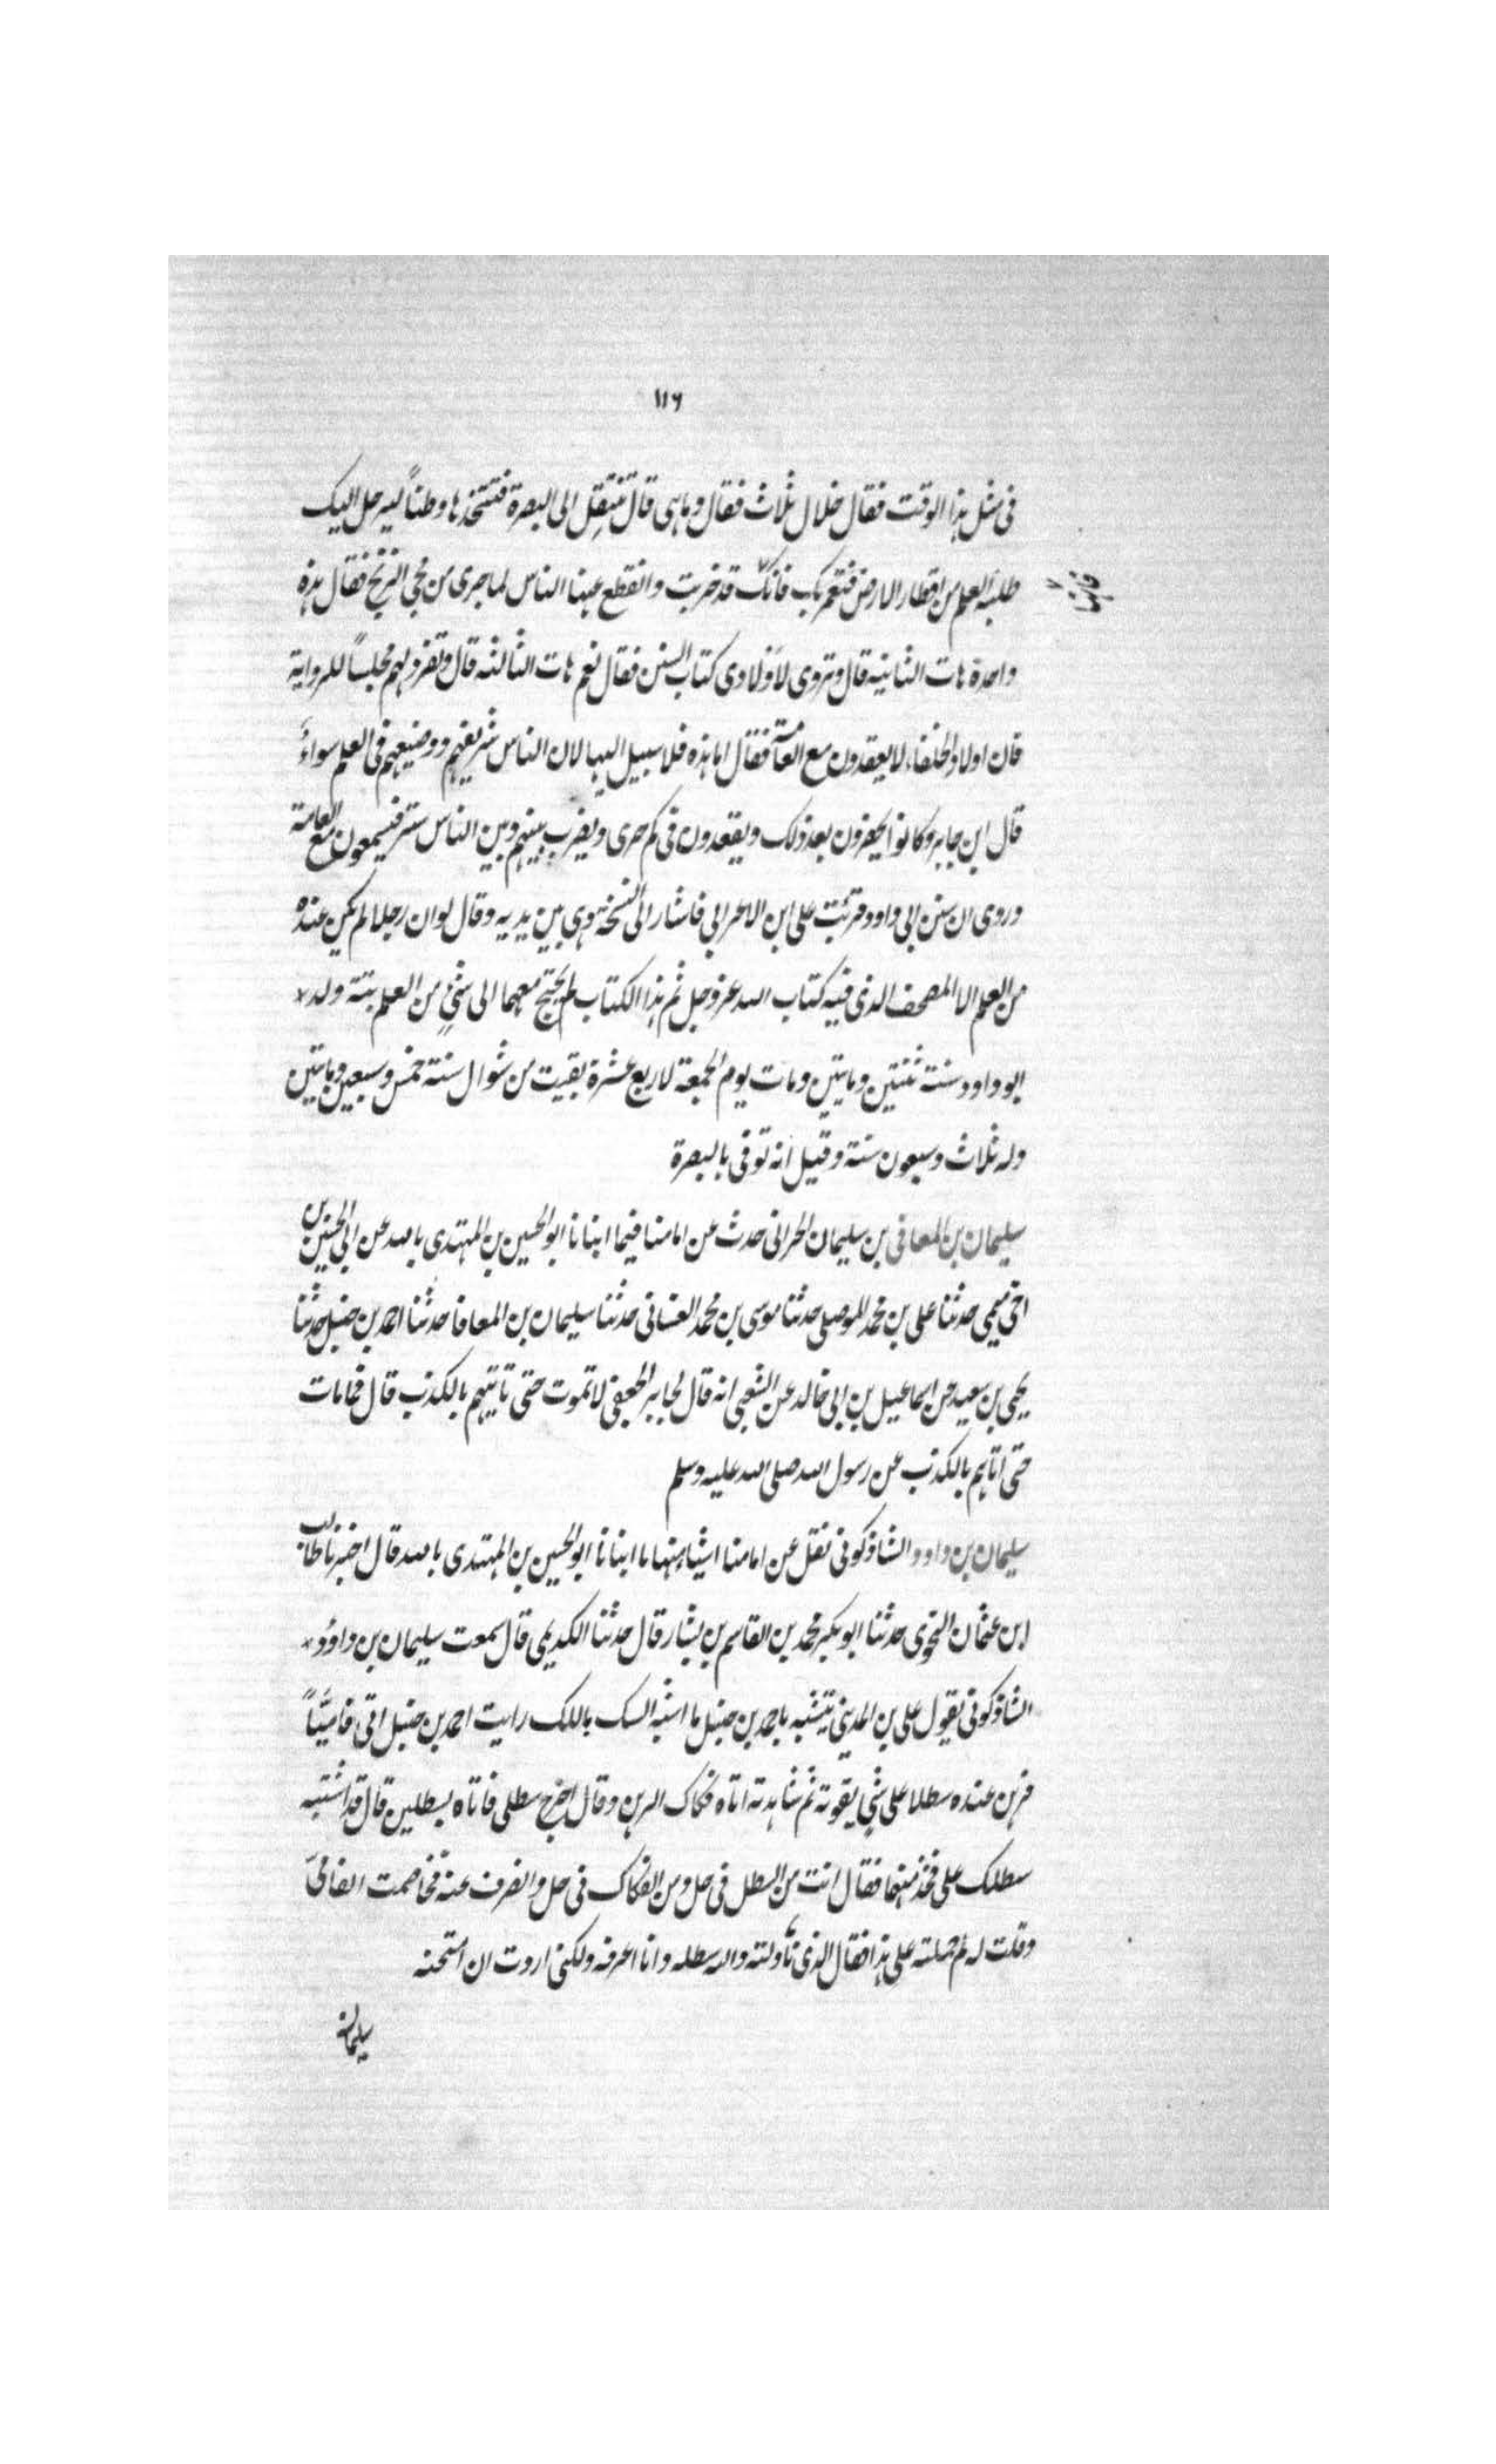 ١١٦
فی مثل هذا الوقت فقال خلال ثلاث فقال وما هی قال تنتقل الی البصرة فتتخذها وطناً لیرحل الیک
طلبة العلم من اقطار الارض فتعمر بک فانک قد خربت وانقطع عنها الناس لما جری من مجی الزنج فقال هذه
واحدة هات الثانیة قال وتروی لاولادی کتاب السنن فقال نعم هات الثالثة قال وتفرد لهم مجلساً للروایة
فان اولاد الخلفاء لا یقعدون مع العامة فقال اما هذه فلا سبیل الیها لان الناس شریفهم ووضیعهم فی العلم سواءٌ
قال ابن جابر وکانوا یحضرون بعد ذلک ویقعدون فی کم حری ویضرب بینهم وبین الناس ستر فیسمعون مع العامة
وروی ان سنن ابی داود قرئت علی ابن الاعرابی فاشار الی النسخة وهی بین یدیه وقال لو ان رجلا لم یکن عنده
من العلم الا المصحف الذی فیه کتاب الله عز وجل ثم هذا الکتاب لم یحتج معهما الی شیٔ من العلم بتة ولد
ابو داود سنة ثنتین ومایتین ومات یوم الجمعة لاربع عشرة بقیت من شوال سنة خمس وسبعین ومایتین
وله ثلاث وسبعون سنة وقیل انه توفی بالبصرة
سلیمان بن المعافی بن سلیمان الحرانی حدث عن امامنا فیما انبانا ابو الحسین بن المهتدی بالله عن ابی الحسین بن
اخی میمی حدثنا علی بن محمد الموصلی حدثنا موسی بن محمد الغسانی حدثنا سلیمان بن المعافا حدثنا احمد بن حنبل حدثنا
یحیی بن سعید عن اسماعیل بن ابی خالد عن الشعبی انه قال لجابر الجعفی لا تموت حتی تاتیهم بالکذب قال فما مات
حتی اتاهم بالکذب عن رسول الله صلی الله علیه وسلم
سلیمان بن داود الشاذکونی نقل عن امامنا اشیاء منها ما انبانا ابو الحسین بن المهتدی بالله قال اخبرنا طالب
ابن عثمان النحوی حدثنا ابو بکر محمد بن القاسم بن بشار قال حدثنا الکدیمی قال سمعت سلیمان بن داود
الشاذکونی یقول علی بن المدینی یتشبه باحمد بن حنبل ما اشبه السک باللک رایت احمد بن حنبل اتی فامیّاً
فرهن عنده سطلا علی شیٔ یقوته ثم شاهدته اتاه فکاک الرهن وقال اخرج سطلی فاتاه بسطلین قال قد اشتبه
سطلک علی فخذ منهما فقال انت من السطل فی حل ومن الفکاک فی حل وانصرف عنه فخاصمت الفامیّ
وقلت له لم حملته علی هذا فقال الذی تناولته والله سطله وانا اعرفه ولکنی اردت ان امتحنه
سلیمان